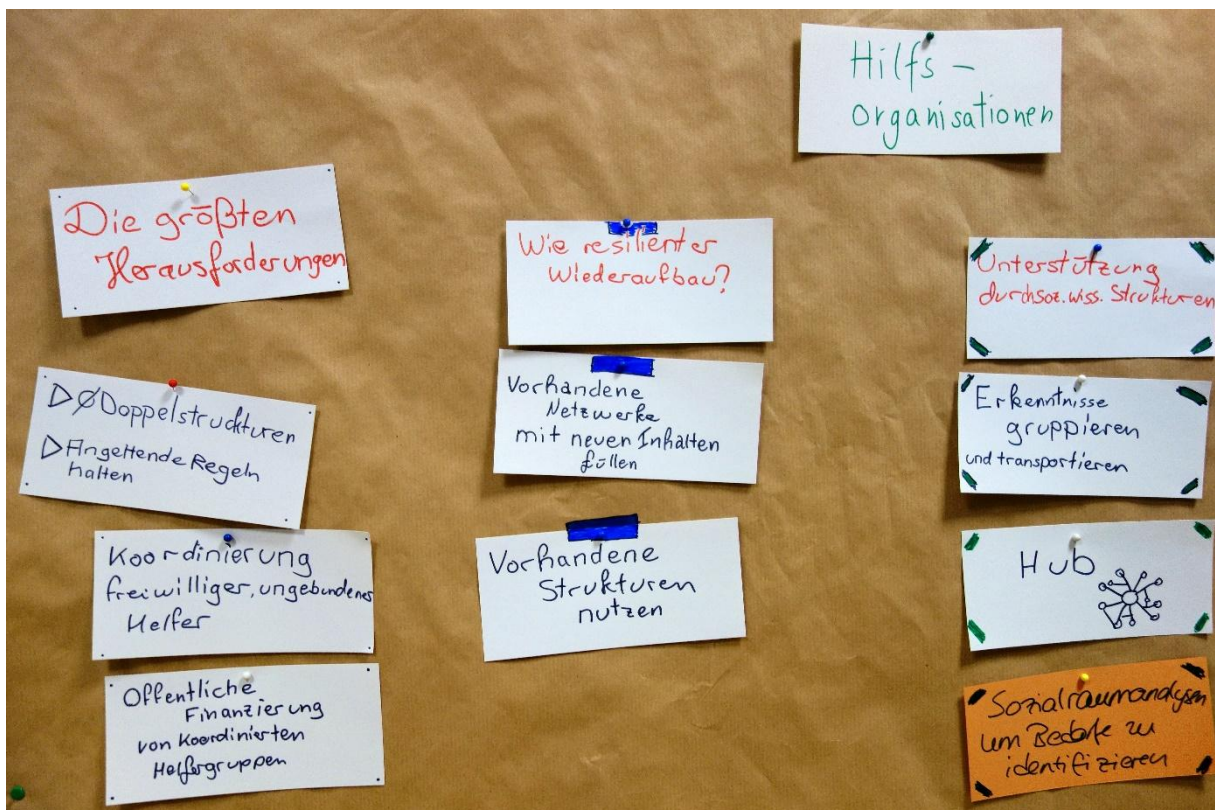 Hilfs-
organisationen
Die größten
Herausforderungen
▷ØDoppelstruckturen
▷Angeltende Regeln
halten
Koordinierung
freiwilliger, ungebundener
Helfer
Öffentliche
Finanzierung
von Koordinierten
Helfergruppen
Wie resilienter
Wiederaufbau?
Vorhandene
Netzwerke
mit neuen Inhalten
füllen
Vorhandene
Strukturen
nutzen
Unterstützung
durch soz. wiss. Strukturen
Erkenntnisse
gruppieren
und transportieren
Hub
Sozialraumanalysen
um Bedarfe zu
identifizieren